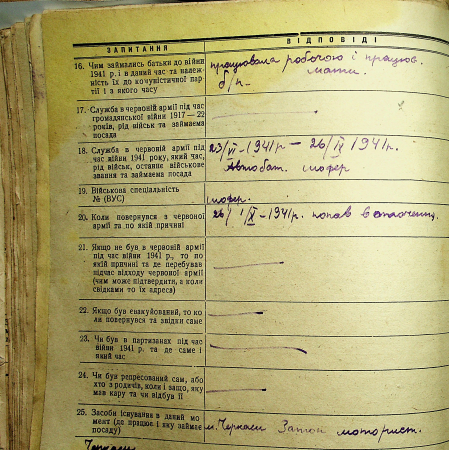 ЗАПИТАННЯ
ВІДПОВІДІ
16. Чим займались батьки до війни
1941 р. і в даний час та належ-
ність їх до комуністичної пар-
тії і з якого часу
працювала робочою і працює
мати.
б/п.
17. Служба в червоній армії під час
громадянської війни 1917—22
років, рід військ та займаема
посада
18. Служба в червоній армії під
час війни 1941 року, який час,
рід військ, останне військове
звання та займаема посада
23/VI-1941р — 26/IX 1941р.
Автобат. шофер
19. Військова спеціальність
№ (ВУС)
шофер.
20. Коли повернувся з червоної
армії та по якій причині
26/IX-1941р. попав в оточення.
21. Якщо не був в червоній армії
під час війни 1941 р., то по
якій причині та де перебував
підчас відходу червоної армії
(чим може підтвердити, а коли
свідками то їх адреса)
22. Якщо був евакуйований, то ко
ли повернувся та звідки саме
23. Чи був в партизанах під час
війни 1941 р. та де саме і
який час
24. Чи був репресований сам, або
хто з родичів, коли і защо, яку
мав кару та чи відбув її
25. Засоби існування в даний мо
мент (де працює і яку займає
посаду)
м. Черкаси Затон моторист.
Черкаси